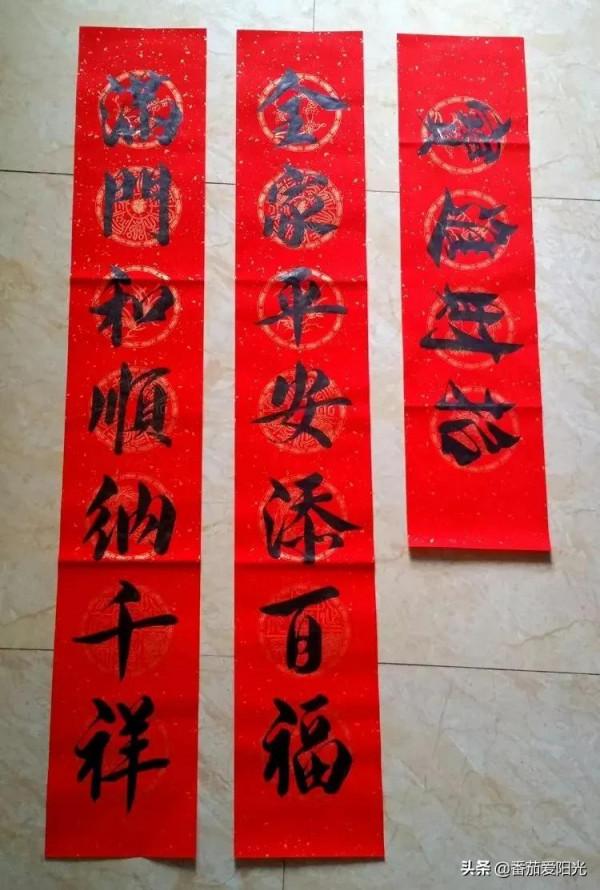 全家平安添百福
滿門和順納千祥
招財進寶
头条 @番茄爱阳光